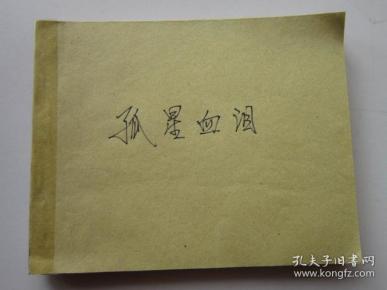 孤星血泪
孔夫子旧书网
www.kongfz.com